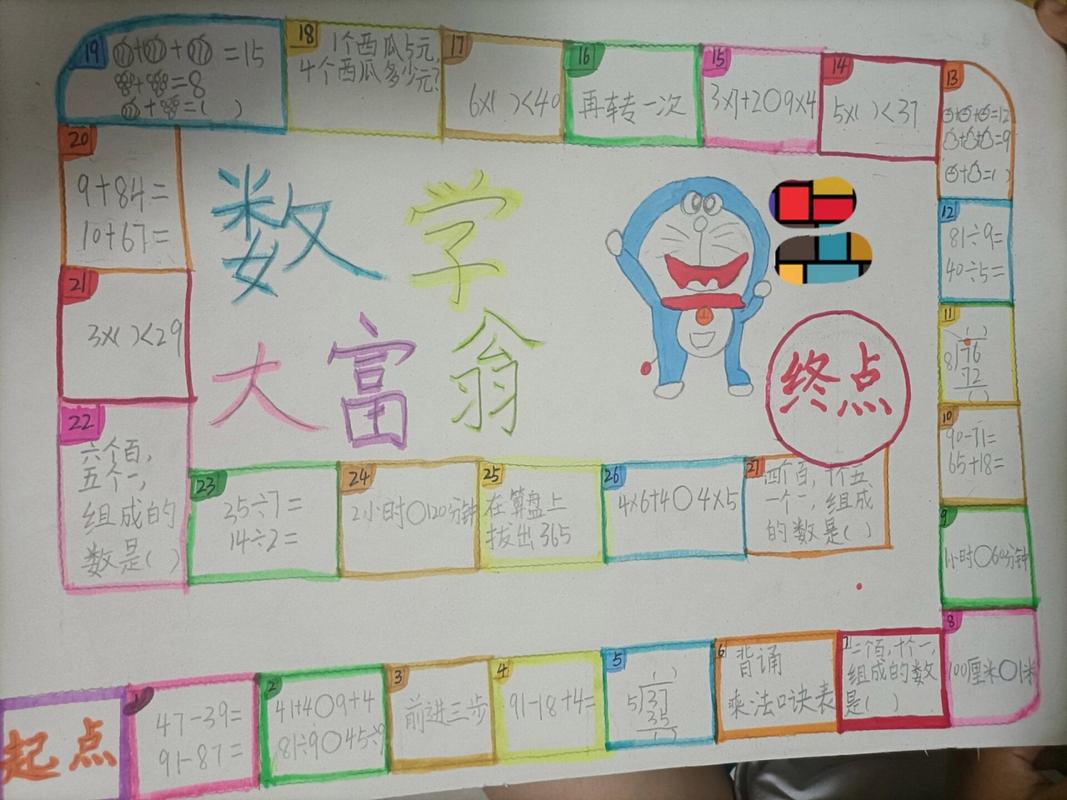 数学
大富翁
起点
1
47-39=
91-87=
2
41+4○9+4
81÷9○45÷9
3
前进三步
4
91-18+4=
5
( )
5)37
35
( )
6
背诵
乘法口诀表
7
二个百,十个一,
组成的数
是( )
8
100厘米○1米
9
1小时○60分钟
10
90-71=
65+18=
11
( )
8)76
72
( )
12
81÷9=
40÷5=
13
+ + =12
+ + =9
+ =( )
14
5×( )<37
15
3×7+2○9×4
16
再转一次
17
6×( )<40
18
1个西瓜5元,
4个西瓜多少元?
19
+ + =15
+ =8
+ =( )
20
9+84=
10+67=
21
3×( )<29
22
六个百,
五个一,
组成的
数是( )
23
35÷7=
14÷2=
24
2小时○120分钟
25
在算盘上
拔出365
26
4×6+4○4×5
27
四个百,十个五
一个一,组成
的数是( )
终点